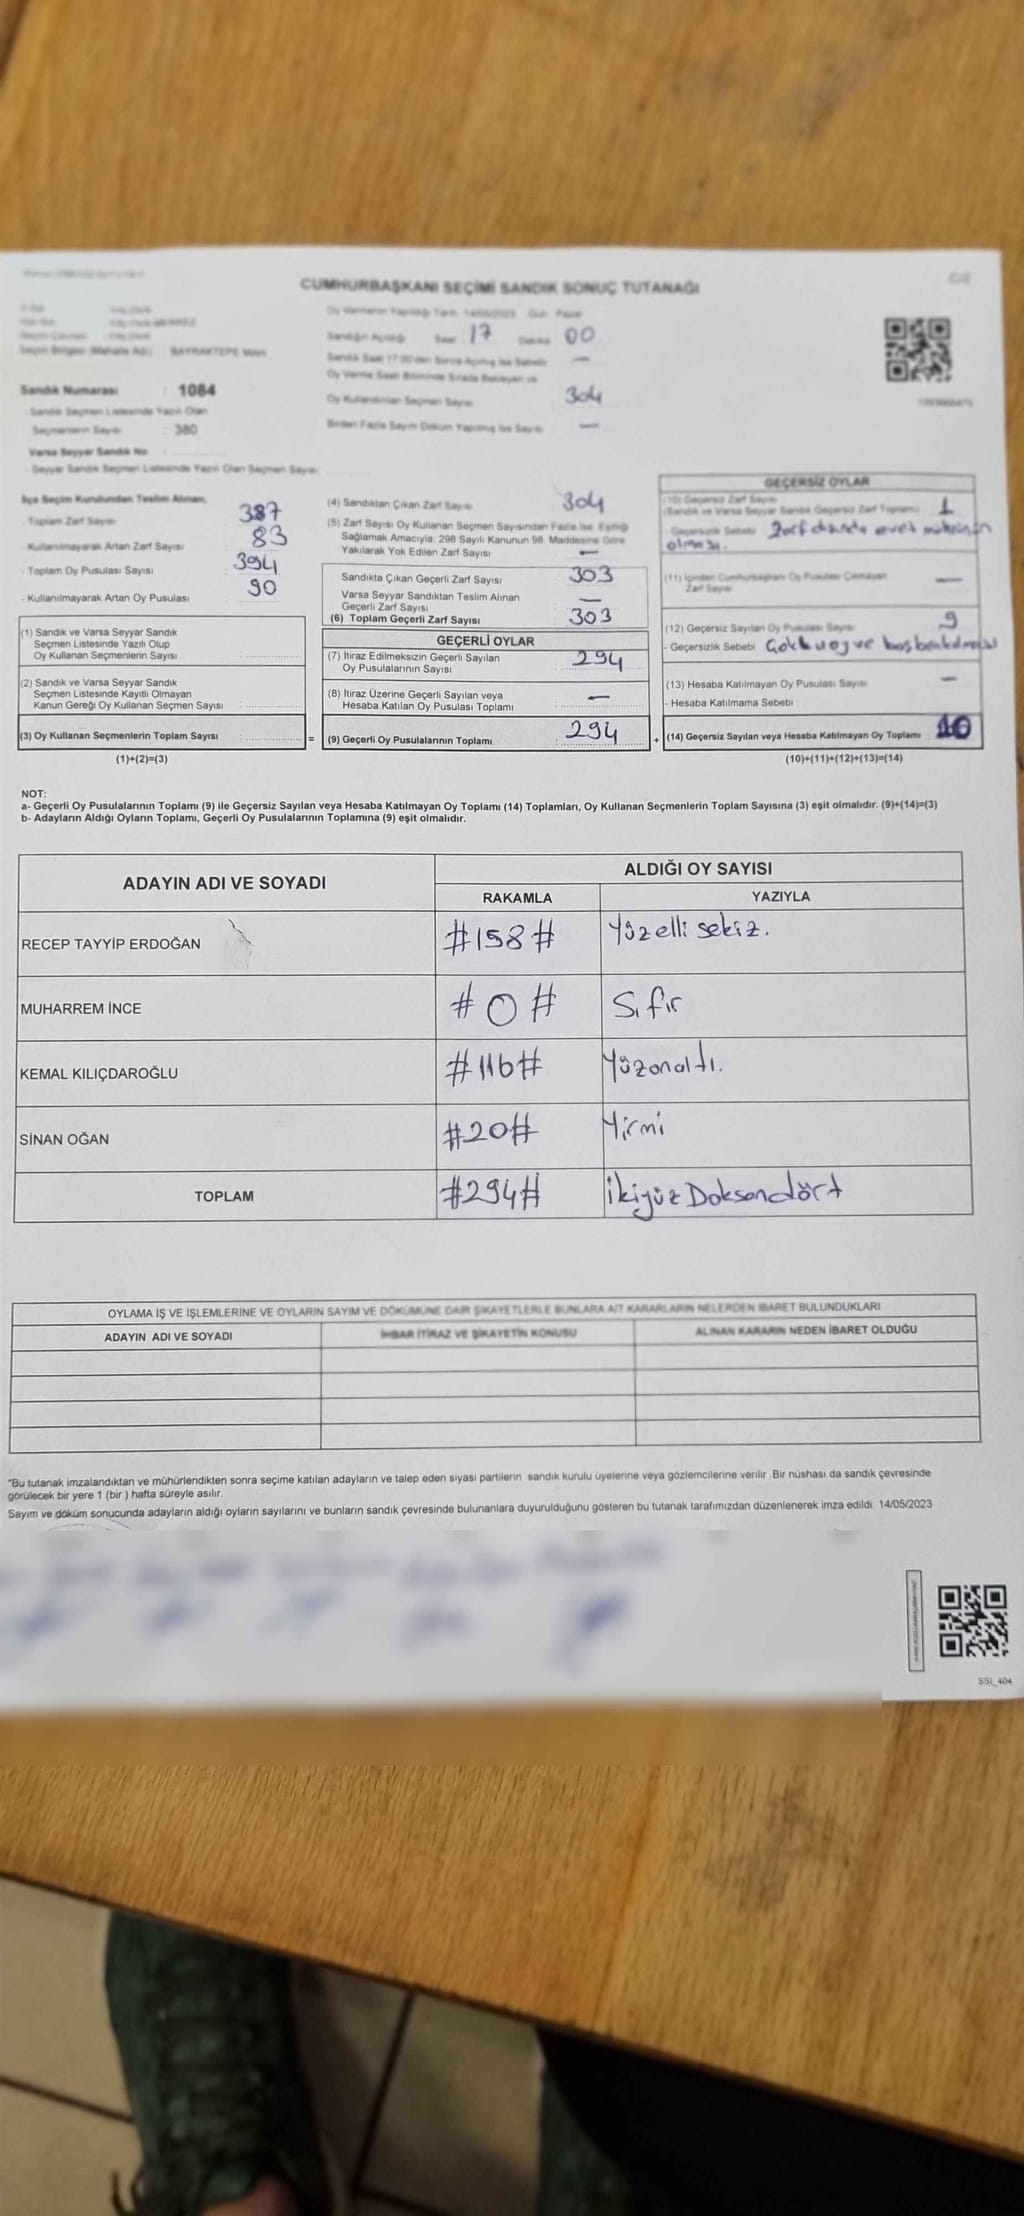 CUMHURBAŞKANI SEÇİMİ SANDIK SONUÇ TUTANAĞI
Oy Vermenin Yapıldığı Tarih: 14/05/2023 Gün: Pazar
Sandığın Açıldığı Saat 17 Dakika 00
Seçim Bölgesi (Mahalle Adı) : BAYRAKTEPE MAH.
Sandık Saat 17:00'den Sonra Açılmış İse Sebebi —
Oy Verme Saati Bitiminde Sırada Bekleyen ve
Sandık Numarası : 1084
Oy Kullandırılan Seçmen Sayısı 304
- Sandık Seçmen Listesinde Yazılı Olan
Seçmenlerin Sayısı : 380
Birden Fazla Sayım Döküm Yapılmış İse Sayısı —
Varsa Seyyar Sandık No :
- Seyyar Sandık Seçmen Listesinde Yazılı Olan Seçmen Sayısı
İlçe Seçim Kurulundan Teslim Alınan;
- Toplam Zarf Sayısı 387
- Kullanılmayarak Artan Zarf Sayısı 83
- Toplam Oy Pusulası Sayısı 394
- Kullanılmayarak Artan Oy Pusulası 90
(1) Sandık ve Varsa Seyyar Sandık
Seçmen Listesinde Yazılı Olup
Oy Kullanan Seçmenlerin Sayısı
(2) Sandık ve Varsa Seyyar Sandık
Seçmen Listesinde Kayıtlı Olmayan
Kanun Gereği Oy Kullanan Seçmen Sayısı :
(3) Oy Kullanan Seçmenlerin Toplam Sayısı =
(1)+(2)=(3)
(4) Sandıktan Çıkan Zarf Sayısı 304
(5) Zarf Sayısı Oy Kullanan Seçmen Sayısından Fazla İse, Eşitliği
Sağlamak Amacıyla; 298 Sayılı Kanunun 98. Maddesine Göre
Yakılarak Yok Edilen Zarf Sayısı —
Sandıkta Çıkan Geçerli Zarf Sayısı 303
Varsa Seyyar Sandıktan Teslim Alınan
Geçerli Zarf Sayısı —
(6) Toplam Geçerli Zarf Sayısı 303
GEÇERLİ OYLAR
(7) İtiraz Edilmeksizin Geçerli Sayılan
Oy Pusulalarının Sayısı 294
(8) İtiraz Üzerine Geçerli Sayılan veya
Hesaba Katılan Oy Pusulası Toplamı : —
(9) Geçerli Oy Pusulalarının Toplamı : 294 +
GEÇERSİZ OYLAR
(10) Geçersiz Zarf Sayısı
(Sandık ve Varsa Seyyar Sandık Geçersiz Zarf Toplamı) : 1
- Geçersizlik Sebebi Zarf dışında evet mührünün
olması.
(11) İçinden Cumhurbaşkanı Oy Pusulası Çıkmayan
Zarf Sayısı —
(12) Geçersiz Sayılan Oy Pusulası Sayısı 9
- Geçersizlik Sebebi
(13) Hesaba Katılmayan Oy Pusulası Sayısı —
- Hesaba Katılmama Sebebi :
(14) Geçersiz Sayılan veya Hesaba Katılmayan Oy Toplamı : 10
(10)+(11)+(12)+(13)=(14)
NOT:
a- Geçerli Oy Pusulalarının Toplamı (9) ile Geçersiz Sayılan veya Hesaba Katılmayan Oy Toplamı (14) Toplamları, Oy Kullanan Seçmenlerin Toplam Sayısına (3) eşit olmalıdır. (9)+(14)=(3)
b- Adayların Aldığı Oyların Toplamı, Geçerli Oy Pusulalarının Toplamına (9) eşit olmalıdır.
ADAYIN ADI VE SOYADI ALDIĞI OY SAYISI
RAKAMLA YAZIYLA
RECEP TAYYİP ERDOĞAN #158# Yüzelli sekiz.
MUHARREM İNCE #0# Sıfır
KEMAL KILIÇDAROĞLU #116# Yüzonaltı.
SİNAN OĞAN #20# Yirmi
TOPLAM #294# İkiyüz Doksandört
OYLAMA İŞ VE İŞLEMLERİNE VE OYLARIN SAYIM VE DÖKÜMÜNE DAİR ŞİKAYETLERLE BUNLARA AİT KARARLARIN NELERDEN İBARET BULUNDUKLARI
ADAYIN ADI VE SOYADI İHBAR İTİRAZ VE ŞİKAYETİN KONUSU ALINAN KARARIN NEDEN İBARET OLDUĞU
"Bu tutanak imzalandıktan ve mühürlendikten sonra seçime katılan adayların ve talep eden siyasi partilerin sandık kurulu üyelerine veya gözlemcilerine verilir .Bir nüshası da sandık çevresinde
görülecek bir yere 1 (bir ) hafta süreyle asılır.
Sayım ve döküm sonucunda adayların aldığı oyların sayılarını ve bunların sandık çevresinde bulunanlara duyurulduğunu gösteren bu tutanak tarafımızdan düzenlenerek imza edildi. 14/05/2023
SSI_404